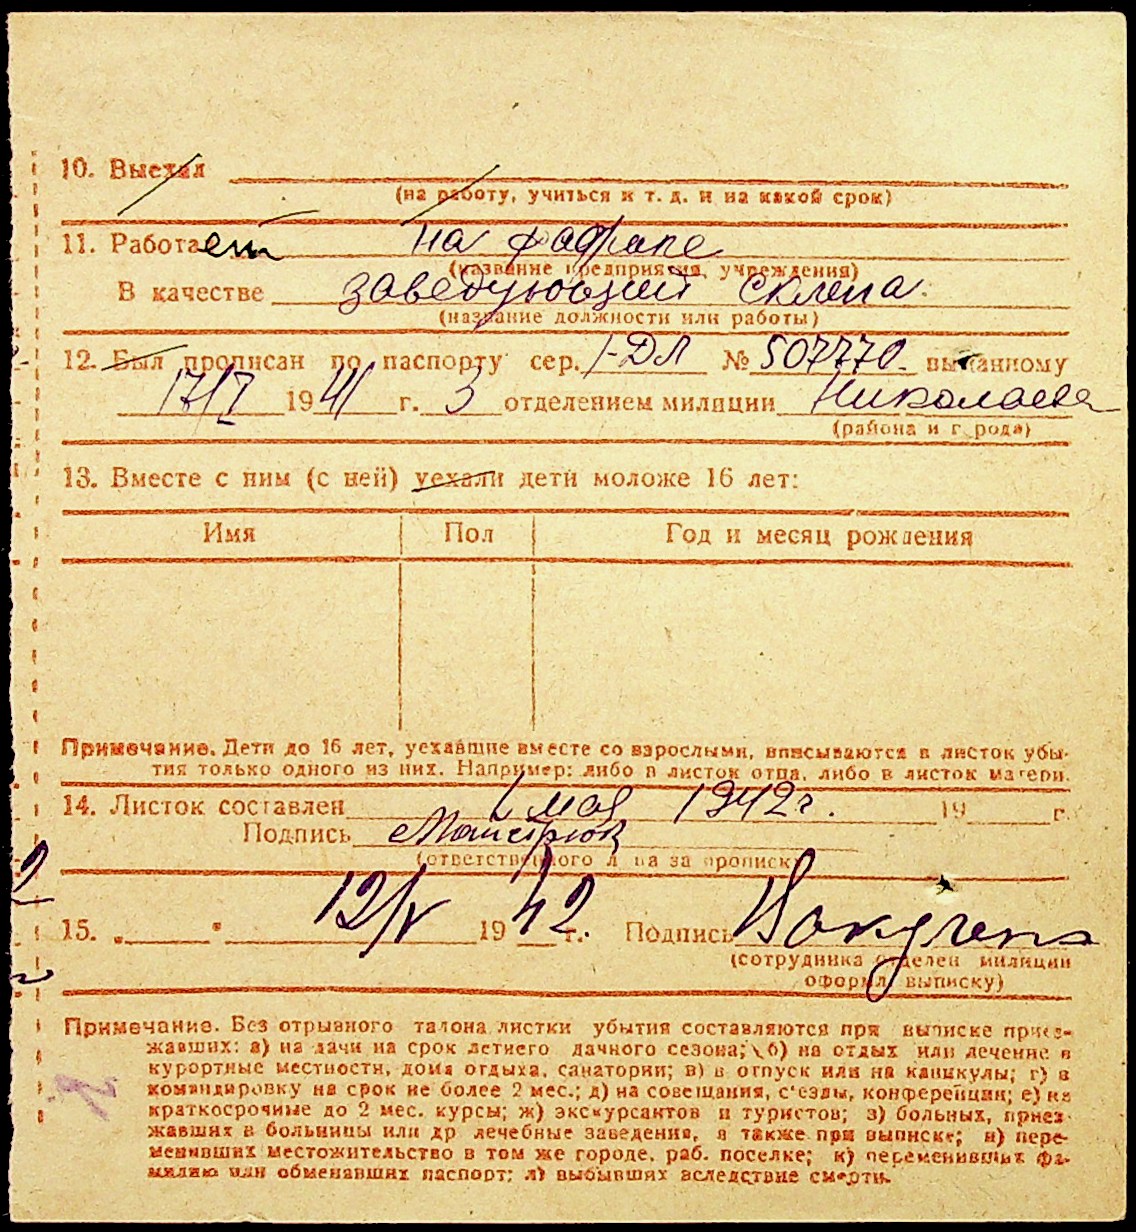 10. Выехал
(на работу, учиться и т. д. и на какой срок)
11. Работает на фабрике
(название предприятия, учреждения)
В качестве заведующий склада
(название должности или работы)
12. Был прописан по паспорту сер. I-ДЛ № 507770 выданному
17/V 1941 г. 3 отделением милиции Николаева
(района и города)
13. Вместе с ним (с ней) уехали дети моложе 16 лет:
Имя Пол Год и месяц рождения
Примечание. Дети до 16 лет, уехавшие вместе со взрослыми, вписываются в листок убы-
тия только одного из них. Например: либо в листок отца, либо в листок матери.
14. Листок составлен мая 1942 г. 19 г.
Подпись
(ответственного лица за прописку)
15. „ " 12/V 1942 г. Подпись
(сотрудника отделен милиции
оформл выписку)
Примечание. Без отрывного талона листки убытия составляются при выписке приез-
жавших: а) на дачи на срок летнего дачного сезона; б) на отдых или лечение в
курортные местности, дома отдыха, санатории; в) в отпуск или на каникулы; г) в
командировку на срок не более 2 мес.; д) на совещания, с'езды, конференции; е) на
краткосрочные до 2 мес. курсы; ж) экскурсантов и туристов; з) больных, приез-
жавших в больницы или др лечебные заведения, а также при выписке; и) пере-
менивших местожительство в том же городе, раб. поселке; к) переменивших фа-
милию или обменавших паспорт; л) выбывших вследствие смерти.